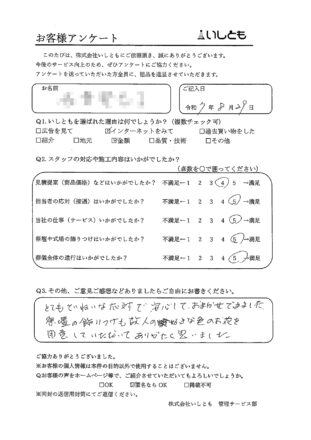 お客様アンケート
いしとも
このたびは、株式会社いしともにご依頼頂き、誠にありがとうございます。
今後のサービス向上のため、ぜひアンケートにご協力ください。
アンケートを送っていただいた方全員に、粗品を進呈させていただきます。
お名前
ご記入日
令和 7年 8月 29日
Q1.いしともを選ばれた理由は何でしょうか?(複数チェック可)
□広告を見て ☑インターネットをみて □過去買い物をした
□紹介 □地元 ☑金額 □品質・技術 □その他
Q2.スタッフの対応や施工内容はいかがでしたか?
(点数を○で囲ってください)
見積提案(商品価格)などはいかがでしたか? 不満足←1 2 3 4 5 →満足
担当者の対応(接遇)はいかがでしたか? 不満足←1 2 3 4 5 →満足
当社の仕事(サービス)いかがでしたか? 不満足←1 2 3 4 5 →満足
祭壇や式場の飾りつけはいかがでしたか? 不満足←1 2 3 4 5 →満足
葬儀全体の進行はいかがでしたか? 不満足←1 2 3 4 5 →満足
Q3.その他、ご意見ご感想などありましたらご自由にお書きください。
とてもていねいな対応で安心しておまかせできました
祭壇の飾りつけも故人の好きな色のお花を
用意していただいてありがたく思いました
ご協力ありがとうございました。
※お客様の個人情報は本件の目的以外で使用することはございません。
※お客様の声をホームページ等で、ご紹介させていただいてもよろしいでしょうか。
□OK ☑匿名ならOK □掲載不可
※同封の返信用封筒にてご返信ください。
株式会社いしとも 管理サービス部